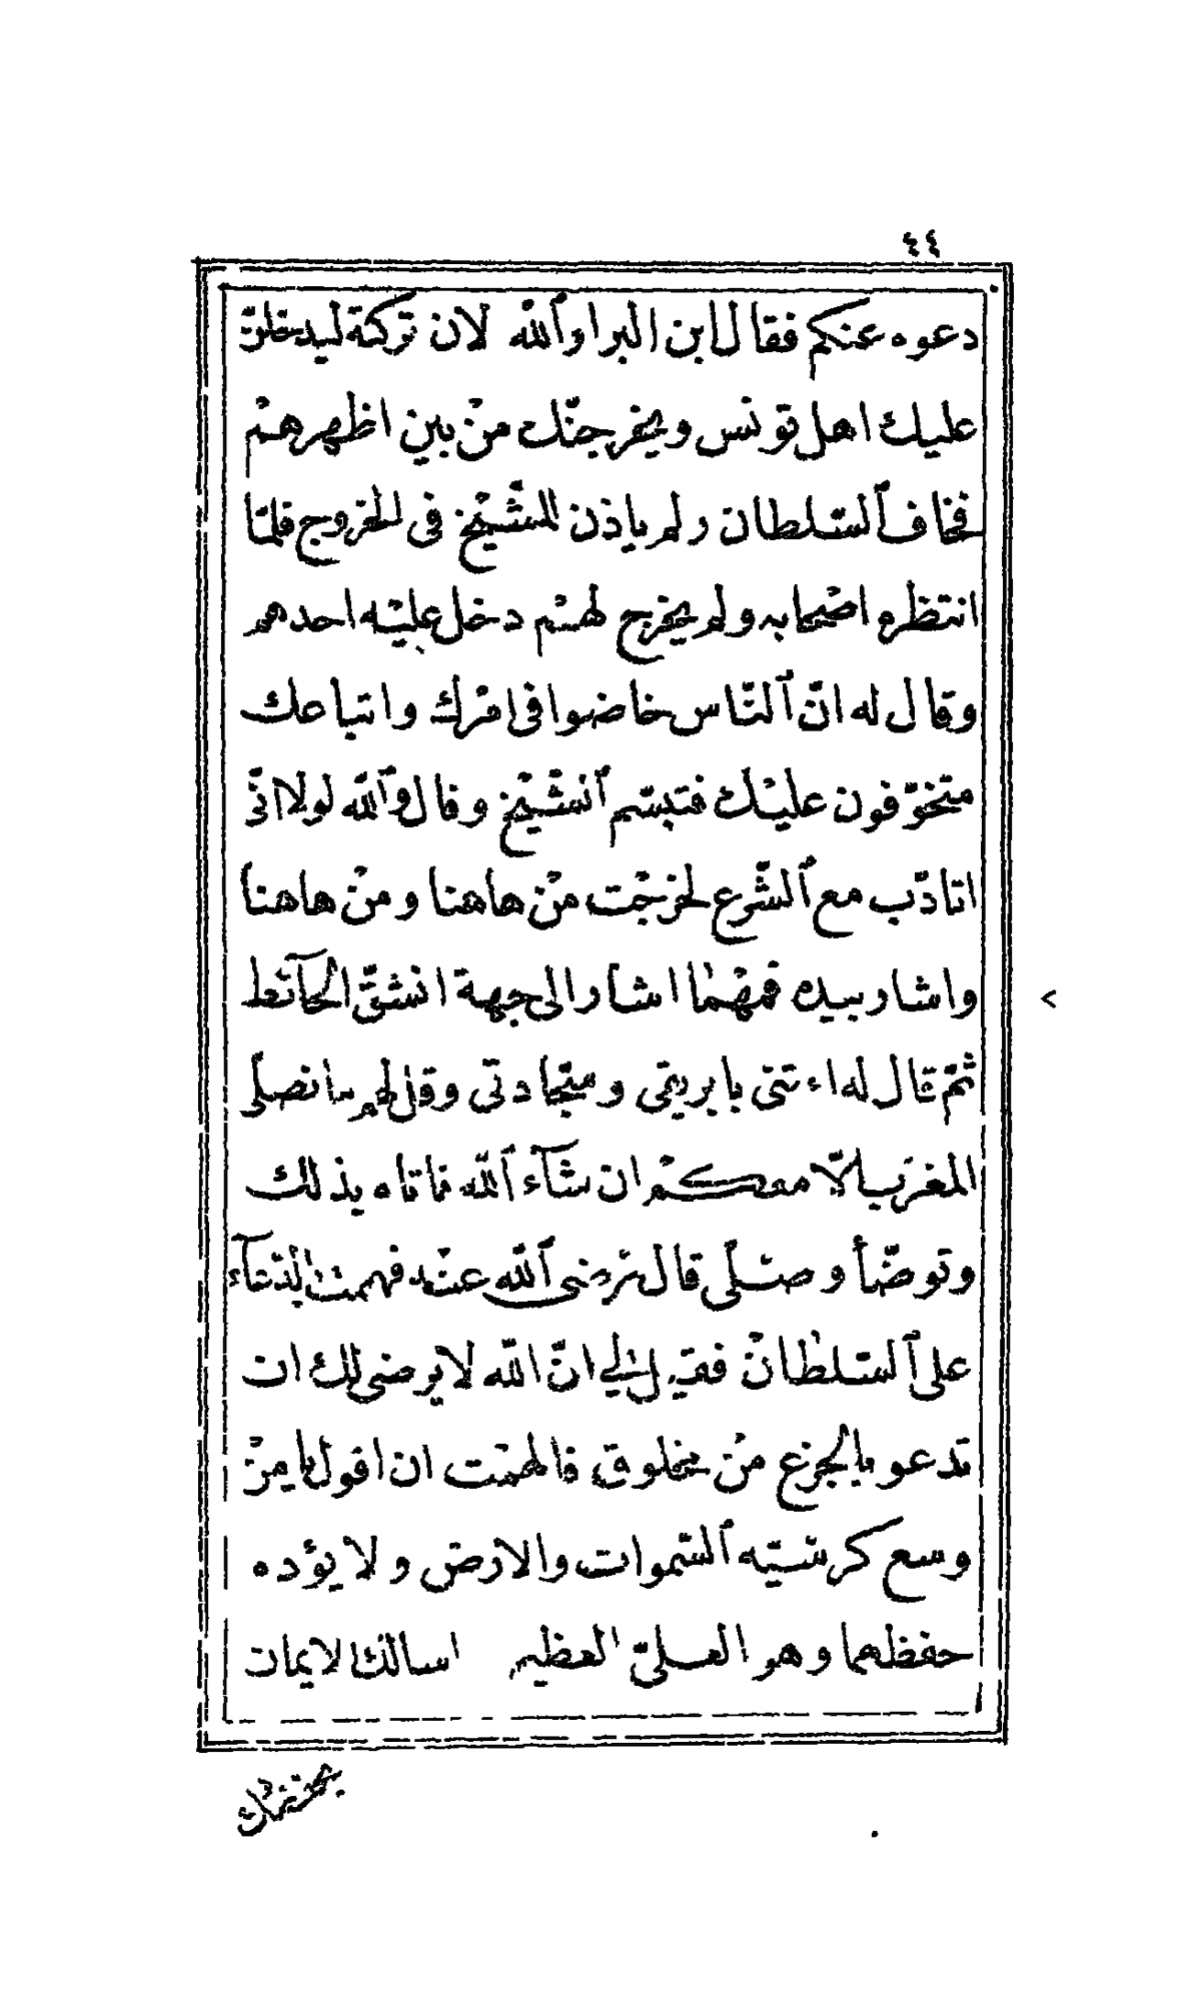 ٤٤
دعوه عنكم فقال ابن البرا والله لان تركته ليدخلن
عليك اهل تونس ويخرجنّك من بين اظهرهم
فخاف السلطان ولم ياذن للشّيخ فى الخروج فلمّا
انتظره اصحابه ولم يخرج لهم دخل عليه احدهم
وقال له انّ النّاس خاضوا فى امرك واتباعك
متخوّفون عليك فتبسّم الشّيخ وقال والله لولا انّى
اتادّب مع الشّرع لخرجت من هاهنا ومن هاهنا
واشار بيده فمهما اشار الى جهة انشقّ الحآئط
ثمّ قال له اءتنى بابريقى وسجّادتى وقل لهم ما نصلى
المغرب الّا معكم ان شآء الله فاتاه بذلك
وتوضّأ وصلّى قال رضى الله عنه فهممت بالدّعآء
على السّلطان فقيل لى انّ الله لا يرضى لك ان
تدعو بالجزع من مخلوق فالهمت ان اقول يا من
وسع كرسيّه السّموات والارض ولا يؤده
حفظهما وهو العلىّ العظيم اسالك الايمان
بحفظك